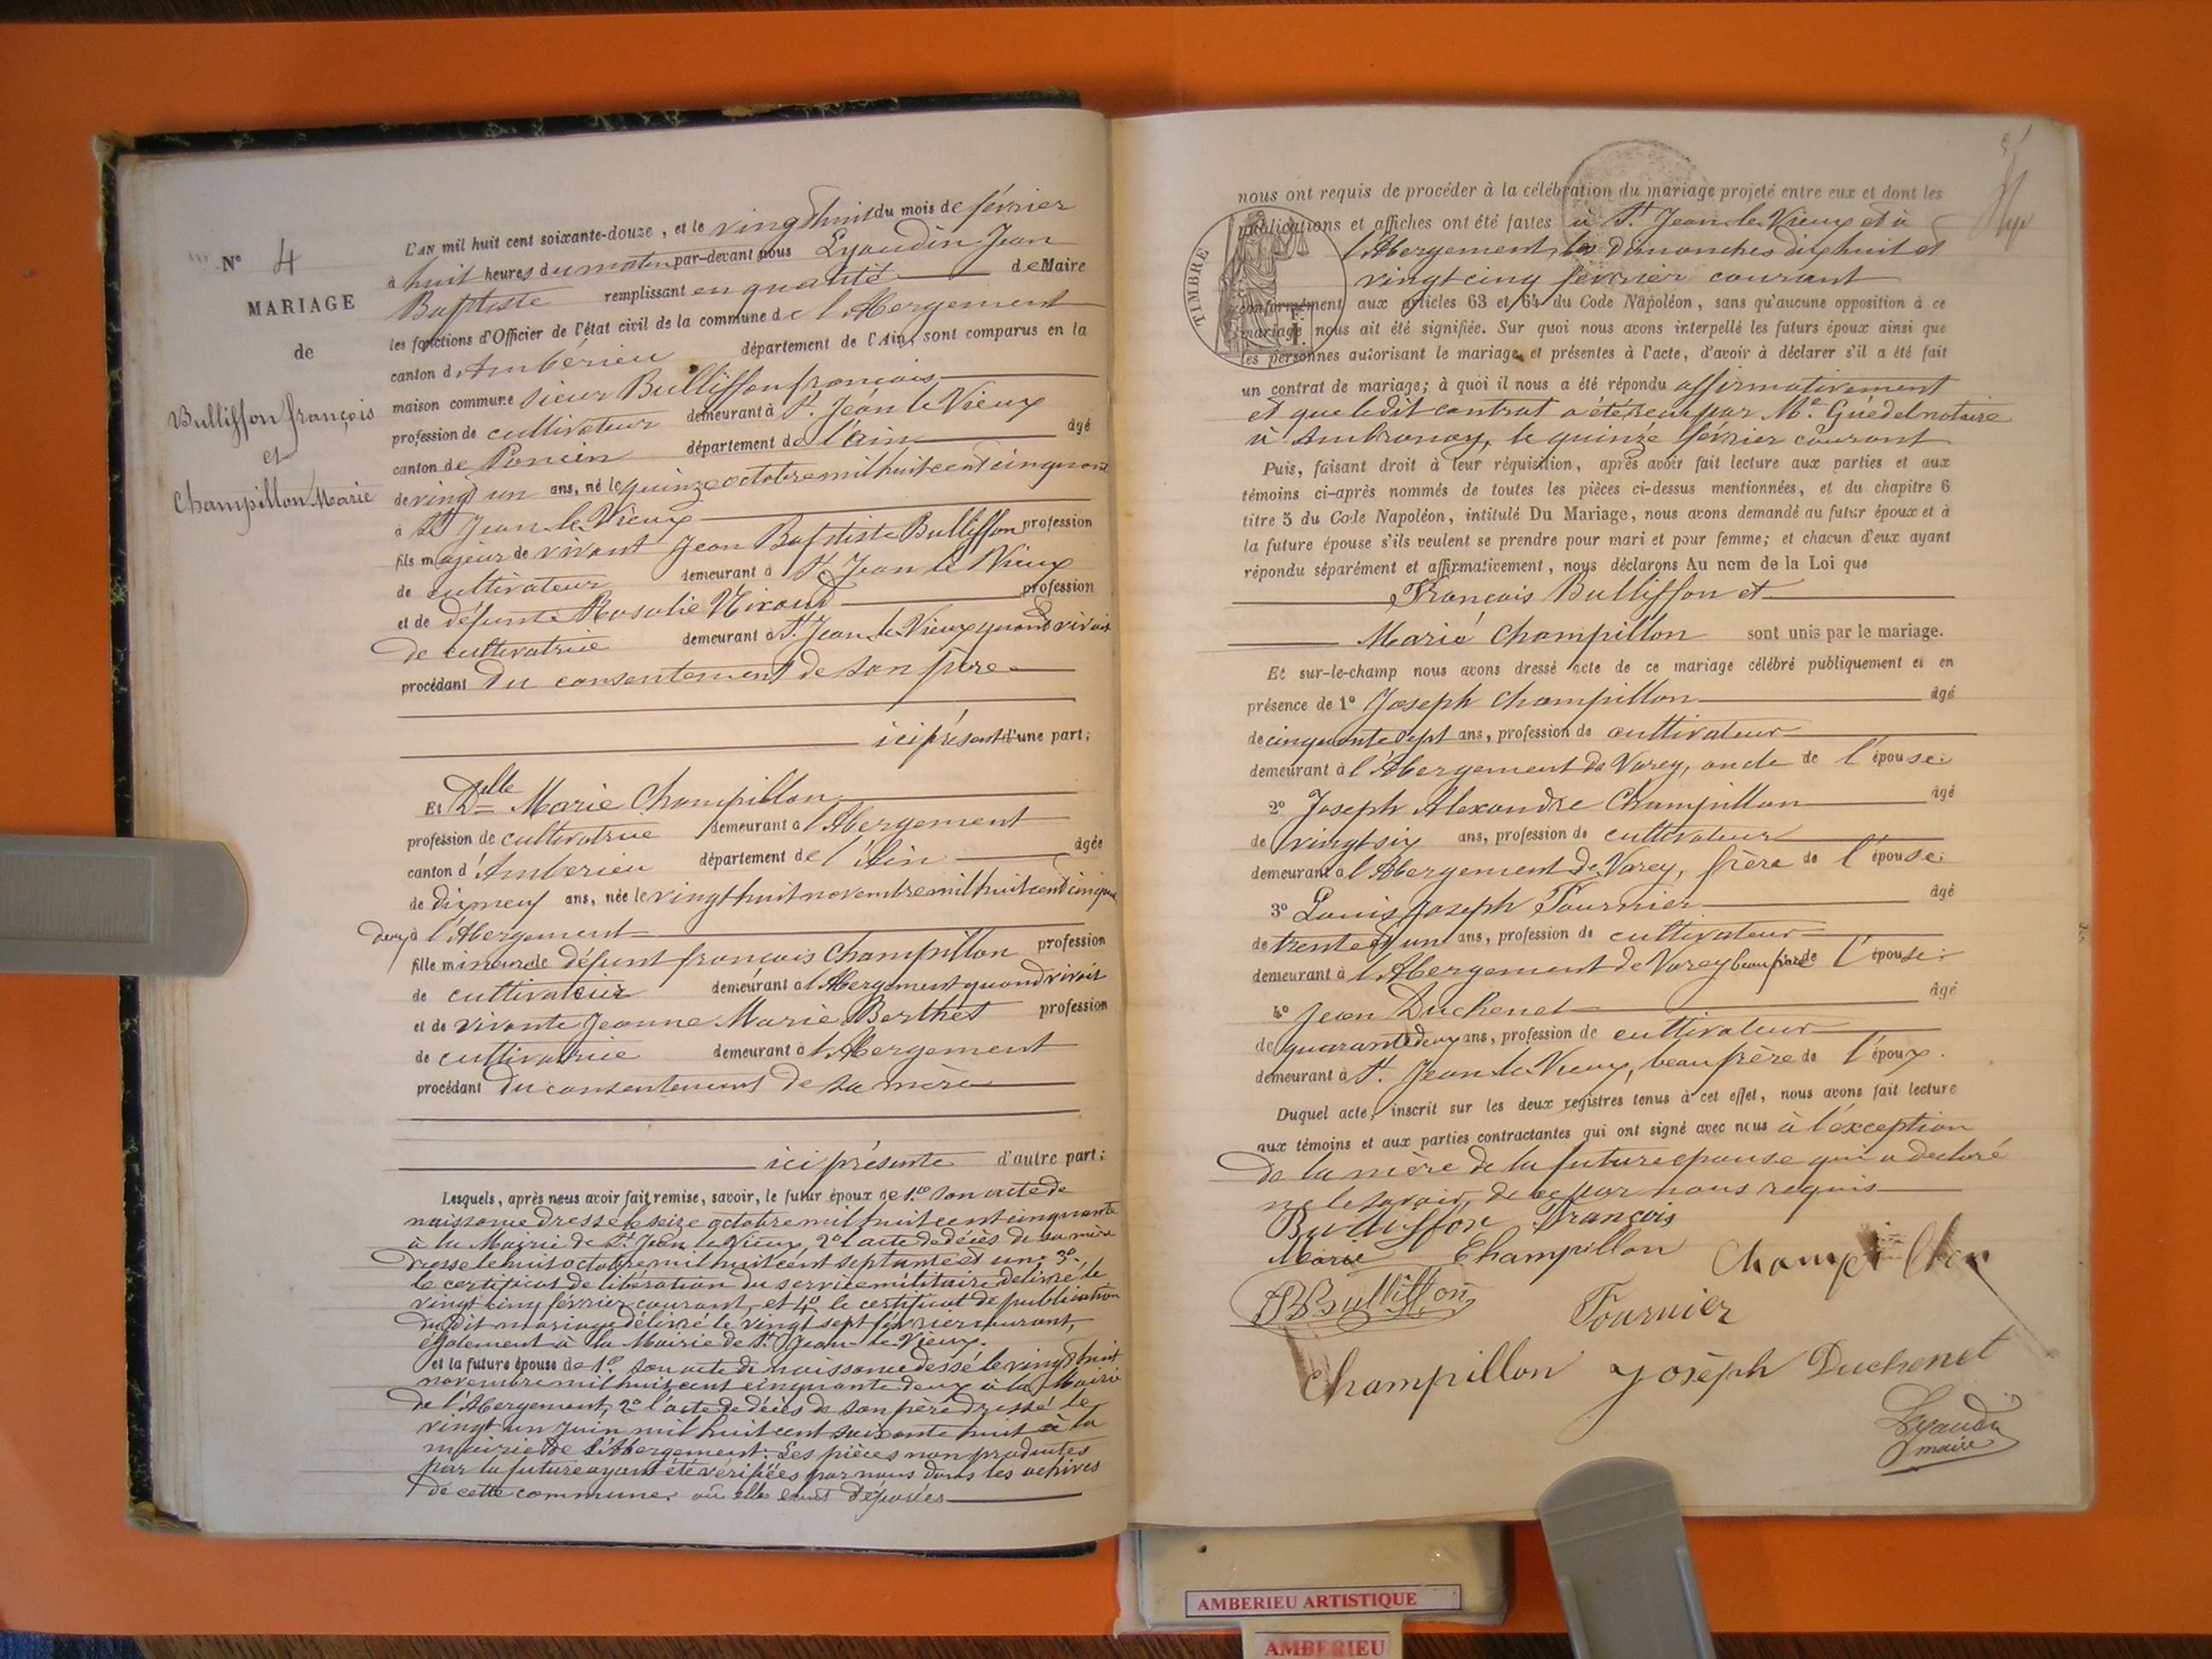 N° 4
MARIAGE
de
Bullifson françois
et
Champillon Marie
L'AN mil huit cent soixante-douze, et le vingt huit du mois de février
à huit heures du matin par-devant nous Lyaudin Jean
Baptiste remplissant en qualité de Maire
les fonctions d'Officier de l'état civil de la commune de l'Abergement
canton d'Ambérieu département de l'Ain, sont comparus en la
maison commune sieur Bullifson françois
profession de cultivateur demeurant à St. Jean le Vieux
canton de Poncin département de l'Ain âgé
de vingt un ans, né le quinze octobre mil huit cent cinquante
à St Jean le Vieux
fils majeur de vivant Jean Baptiste Bullifson profession
de cultivateur demeurant à St Jean le Vieux
et de défunte Rosalie profession
de cultivatrice demeurant à St. Jean le Vieux quand vivait
procédant du consentement de son père
ici présent d'une part;
Et Delle Marie Champillon
profession de cultivatrice demeurant à l'Abergement
canton d'Amberieu département de l'Ain âgée
de dix neuf ans, née le vingt huit novembre mil huit cent cinquante
deux à l'Abergement
fille mineure de défunt françois Champillon profession
de cultivateur demeurant à l'Abergement quand vivait
et de vivante Jeanne Marie Berthet profession
de cultivatrice demeurant à l'Abergement
procédant du consentement de sa mère
ici présente d'autre part;
Lesquels, après nous avoir fait remise, savoir, le futur époux de 1° son acte de
naissance dressé le seize octobre mil huit cent cinquante
à la Mairie de St Jean le Vieux, 2° l'acte de décès de sa mère
dressé le huit octobre mil huit cent septante et un; 3°
le certificat de libération du service militaire délivré le
vingt cinq février courant, et 4° le certificat de publication
du dit mariage délivré le vingt sept février courant,
également à la Mairie de St. Jean le Vieux.
et la future épouse de 1° son acte de naissance dressé le vingt huit
novembre mil huit cent cinquante deux à la Mairie
de l'Abergement, 2° l'acte de décès de son père dressé le
vingt un juin mil huit cent soixante huit à la
mairie de l'Abergement. Les pièces non produites
par la future ayant été vérifiées par nous dans les achives
de cette commune où elles sont déposées
nous ont requis de procéder à la célébration du mariage projeté entre eux et dont les
publications et affiches ont été faites à St Jean le Vieux et à
l'Abergement, les dimanches dix huit et
vingt cinq février courant
TIMBRE
conformément aux articles 63 et 64 du Code Napoléon, sans qu'aucune opposition à ce
mariage nous ait été signifiée. Sur quoi nous avons interpellé les futurs époux ainsi que
les personnes autorisant le mariage et présentes à l'acte, d'avoir à déclarer s'il a été fait
un contrat de mariage; à quoi il nous a été répondu affirmativement
et que le dit contrat a été reçu par Me. Guédel notaire
à Ambronay, le quinze février courant
Puis, faisant droit à leur réquisition, après avoir fait lecture aux parties et aux
témoins ci-après nommés de toutes les pièces ci-dessus mentionnées, et du chapitre 6
titre 5 du Code Napoléon, intitulé Du Mariage, nous avons demandé au futur époux et à
la future épouse s'ils veulent se prendre pour mari et pour femme; et chacun d'eux ayant
répondu séparément et affirmativement, nous déclarons Au nom de la Loi que
François Bullifson et
Marie Champillon sont unis par le mariage.
Et sur-le-champ nous avons dressé acte de ce mariage célébré publiquement et en
présence de 1° Joseph Champillon âgé
de cinquante sept ans, profession de cultivateur
demeurant à l'Abergement de Varey, oncle de l'épouse
2° Joseph Alexandre Champillon âgé
de vingt six ans, profession de cultivateur
demeurant à l'Abergement de Varey, frère de l'épouse
3° Louis Joseph Fournier âgé
de trente et un ans, profession de cultivateur
demeurant à l'Abergement de Varey beau frère de l'épouse
4° Jean Duchenet âgé
de quarante deux ans, profession de cultivateur
demeurant à St. Jean le Vieux, beau frère de l'époux.
Duquel acte, inscrit sur les deux registres tenus à cet effet, nous avons fait lecture
aux témoins et aux parties contractantes qui ont signé avec nous à l'exception
de la mère de la future épouse qui a déclaré
ne le savoir, de ce par nous requis
Bullifson François
Marie Champillon Champillon
JB Bullifson Fournier
Champillon Joseph Duchenet
Lyaudin
maire
AMBERIEU ARTISTIQUE
AMBERIEU